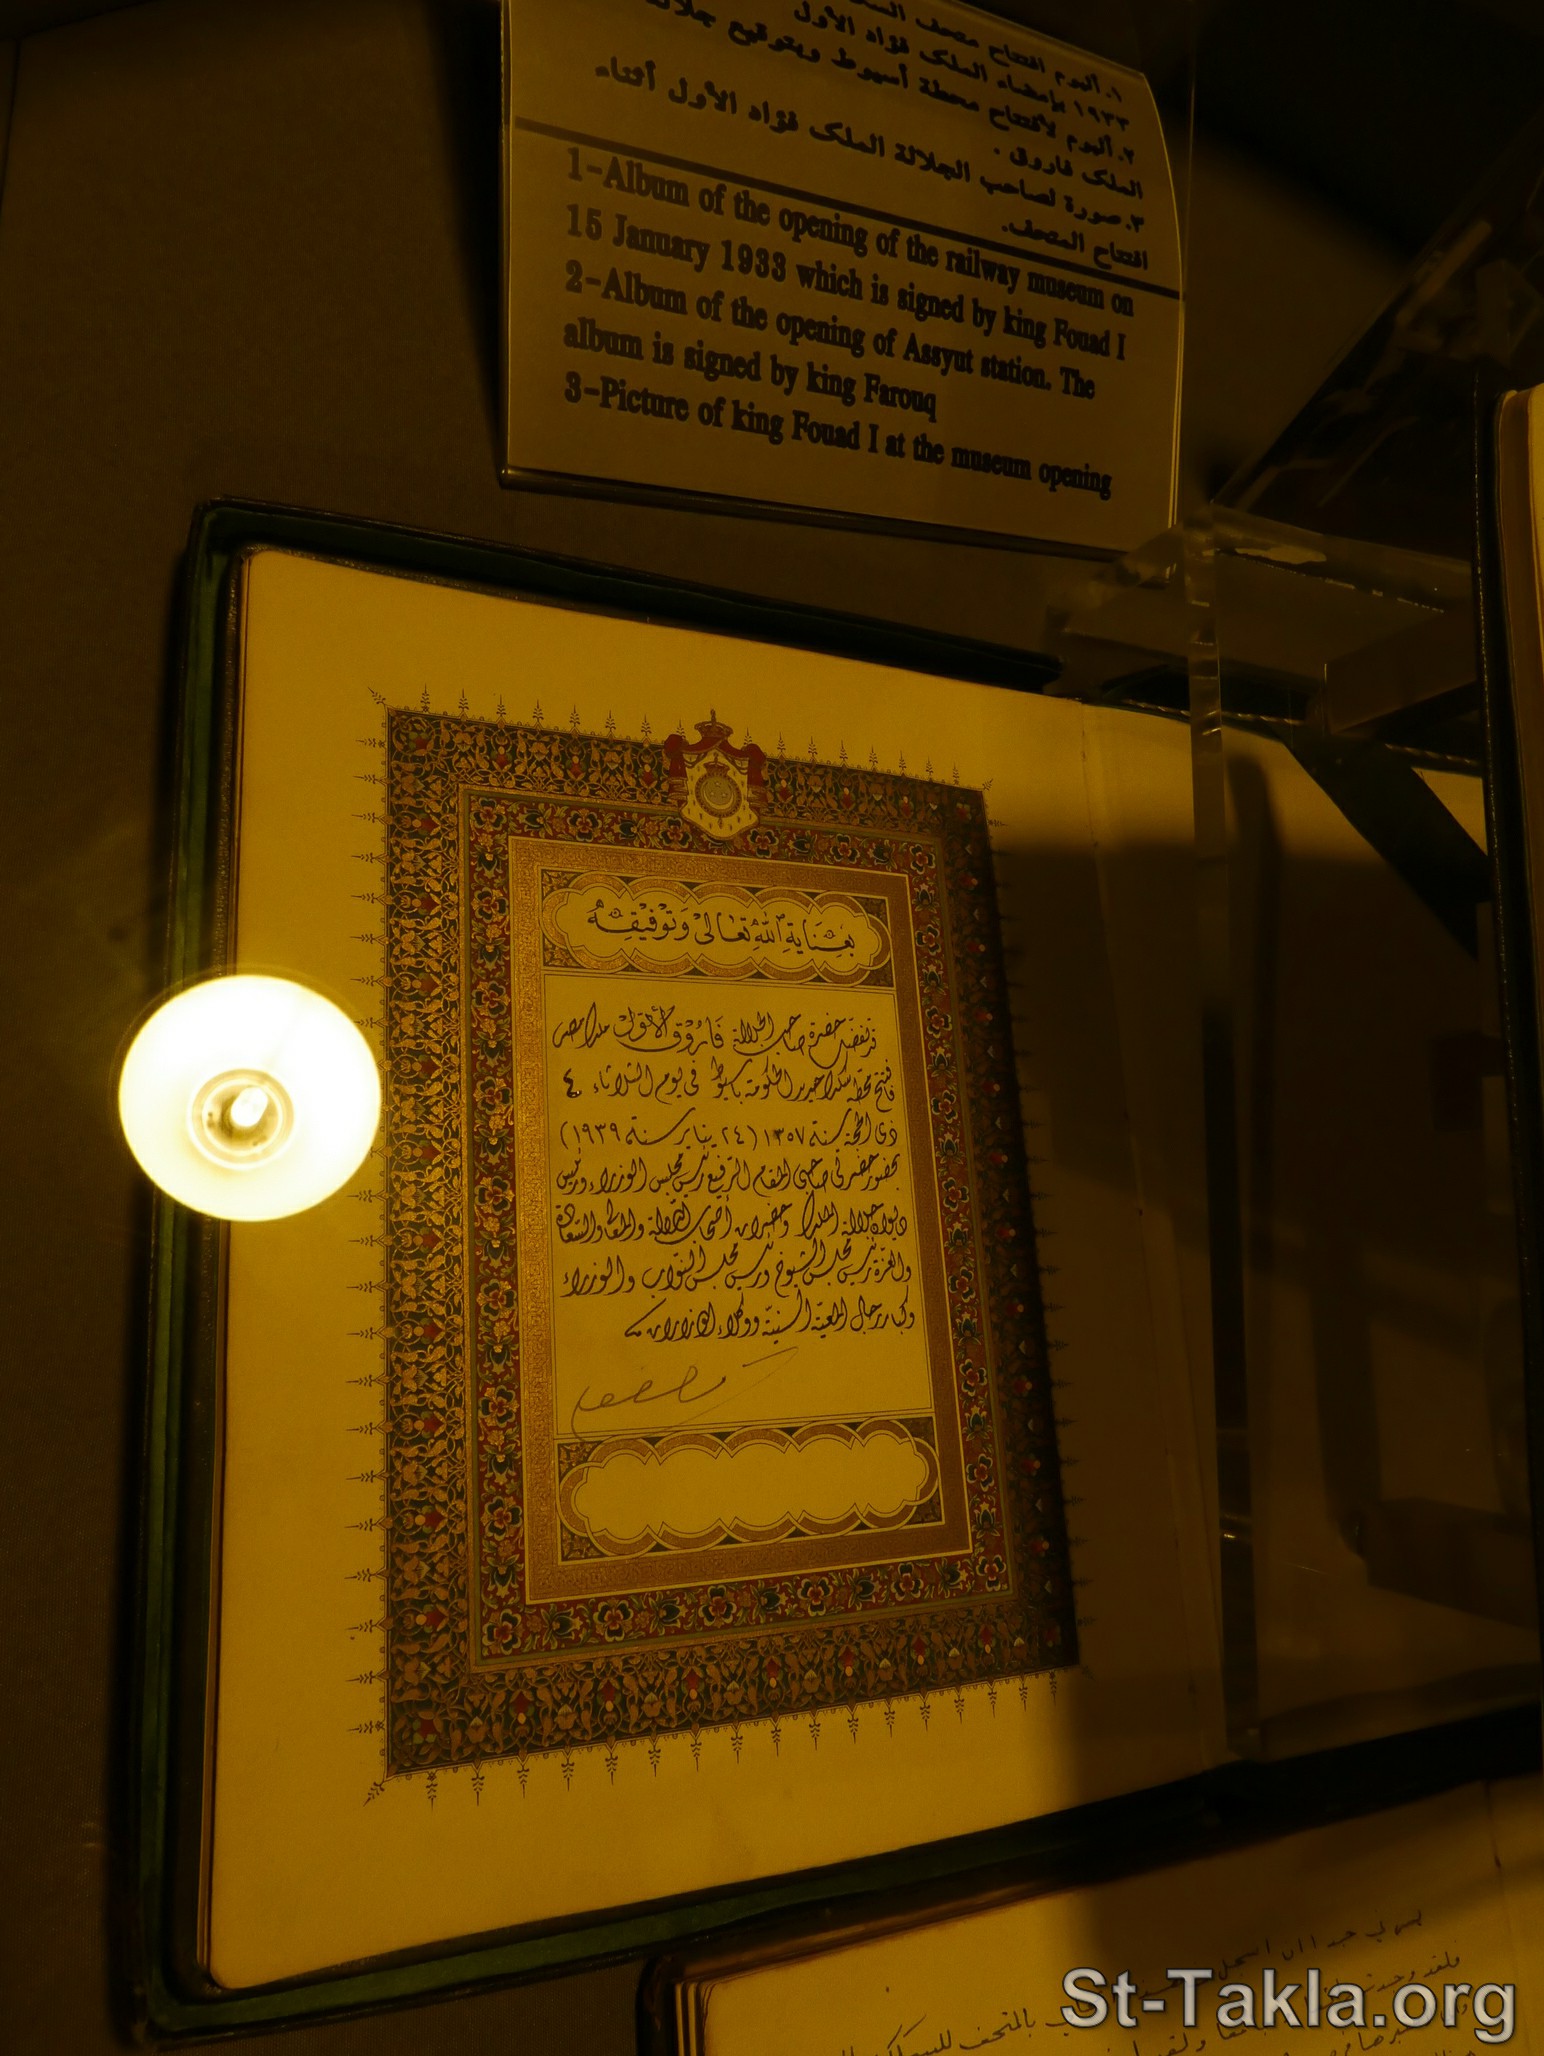 ١. ألبوم افتتاح متحف
١٩٣٣ بإمضاء الملك فؤاد الأول
٢. ألبوم لأفتتاح محطة أسيوط وبتوقيع جلالة
الملك فاروق .
٣. صورة لصاحب الجلالة الملك فؤاد الأول أثناء
افتتاح المتحف.
1-Album of the opening of the railway museum on
15 January 1933 which is signed by king Fouad I
2-Album of the opening of Assyut station. The
album is signed by king Farouq
3-Picture of king Fouad I at the museum opening
بِعِنَايَةِ اللّٰهِ تَعَالىٰ وَتَوْفيْقِهِ
قد تفضل حضرة صاحب الجلالة فَارُوْق الأَوّل ملك مصر
فافتتح محطة سكك حديد الحكومة بأسيوط فى يوم الثلاثاء ٤
ذى الحجة سنة ١٣٥٧ (٢٤ يناير سنة ١٩٣٩)
بحضور حضرتى صاحبى المقام الرفيع رئيس مجلس الوزراء ورئيس
ديوان جلالة الملك وحضرات أصحاب الدولة والمعالى والسعادة
والعزة رئيس مجلس الشيوخ ورئيس مجلس النواب والوزراء
وكبار رجال المعية السنية ووكلاء الوزارات
لى جدا ان اسجل
فلقد وجدت
بالمتحف
St-Takla.org